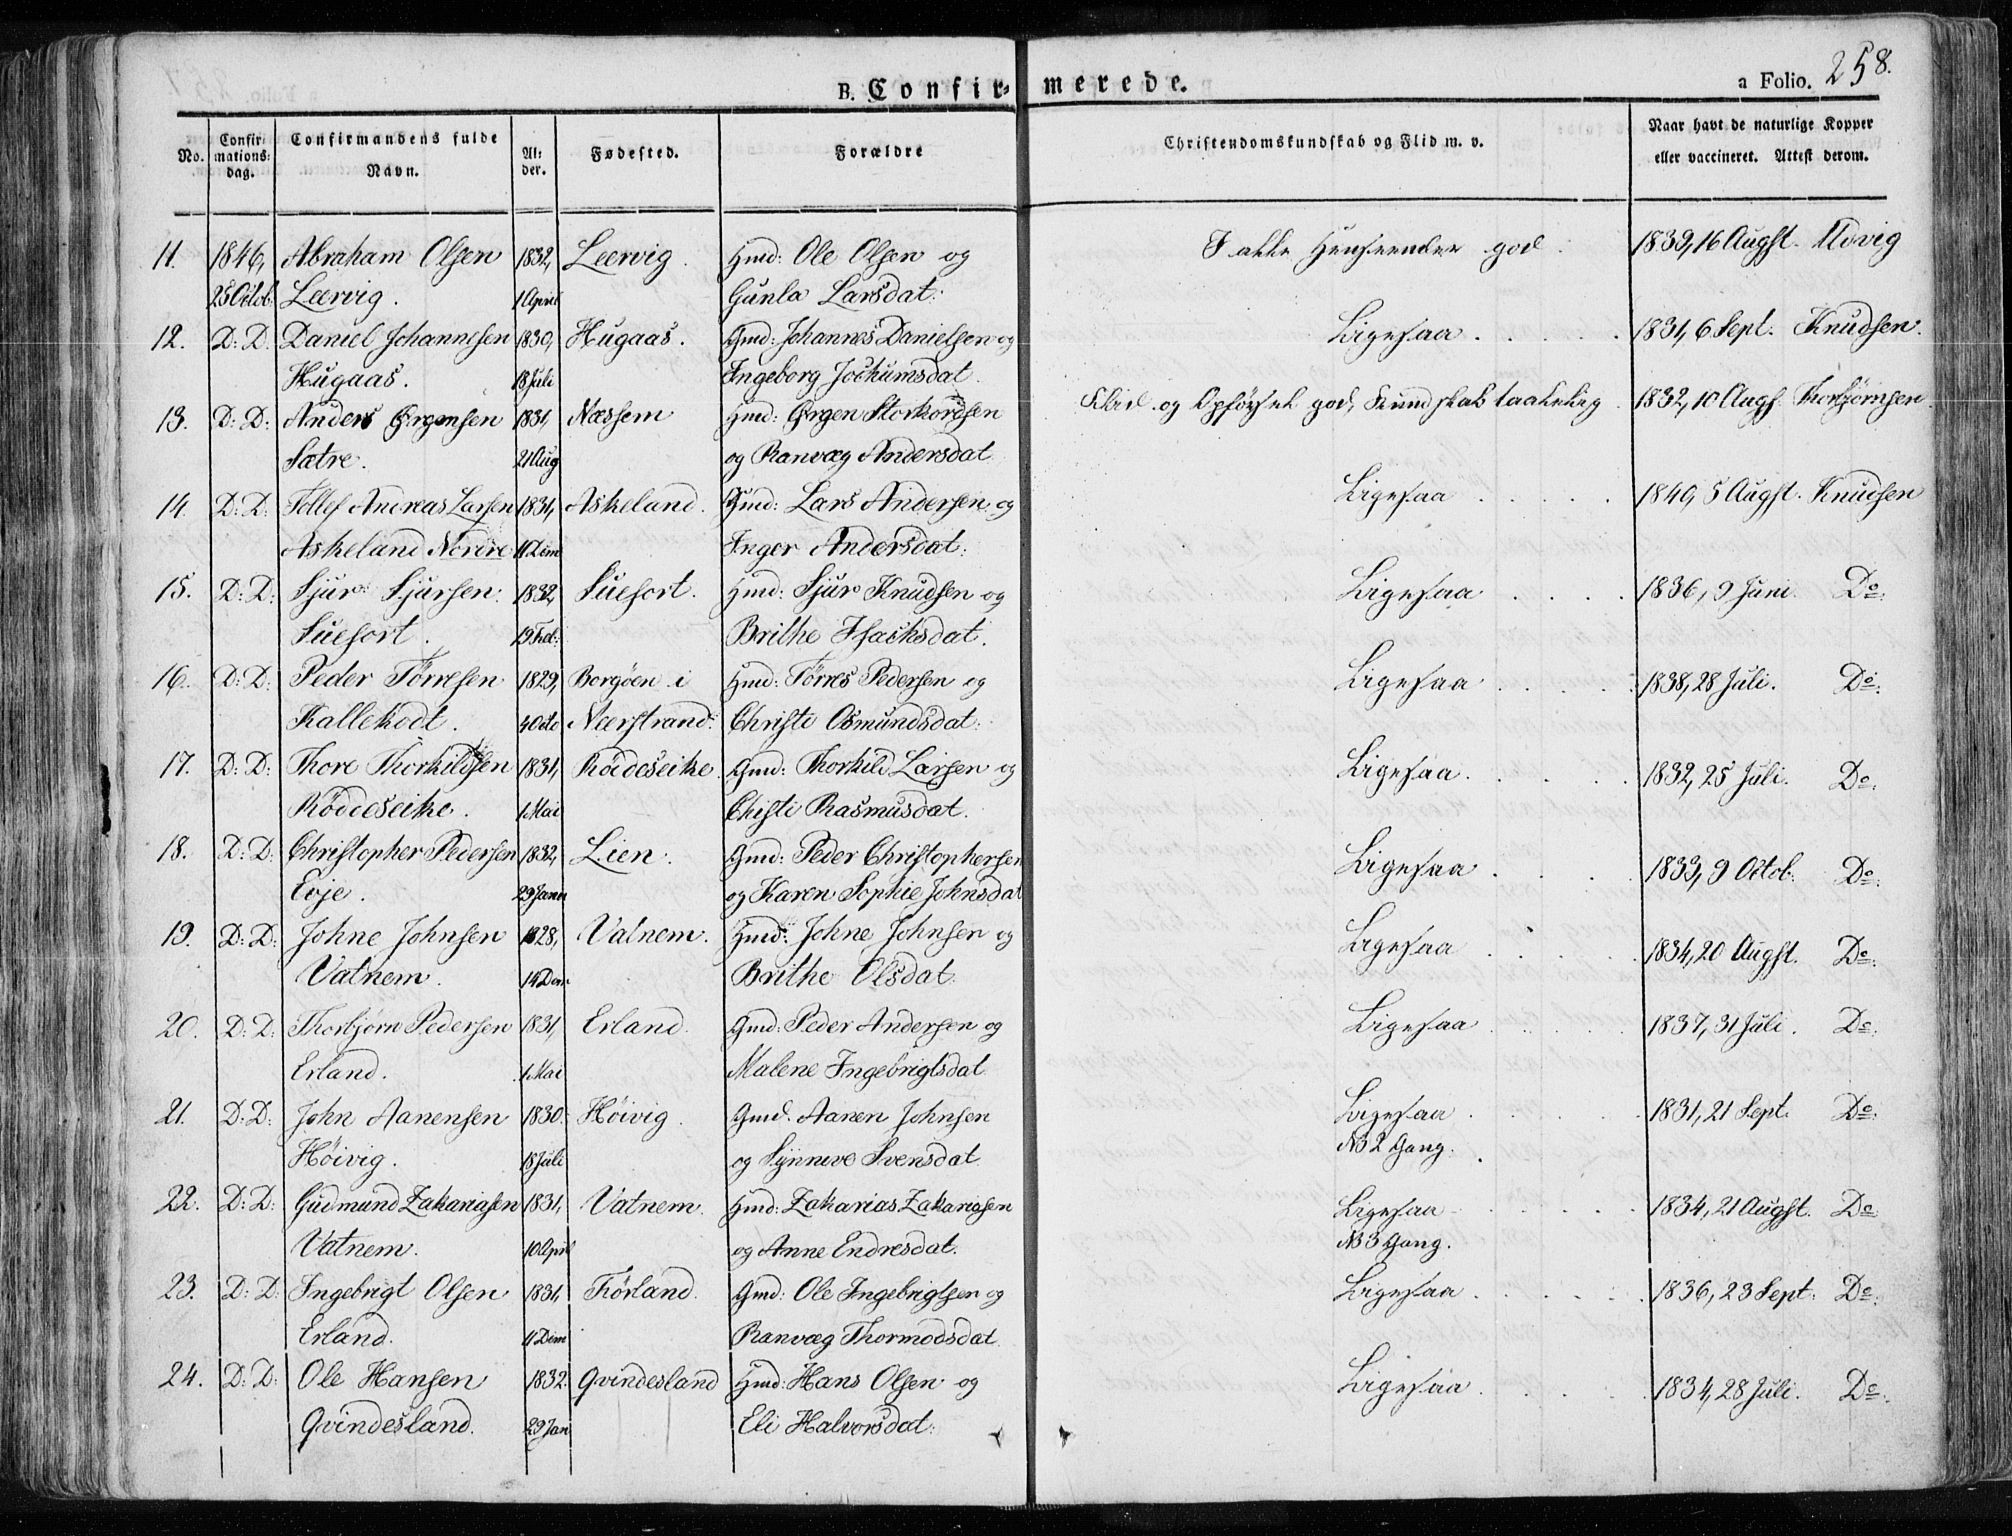 B. Confir- merede.
a Folio. 258.
No. Confir-mations-dag. Confirmandens fulde Navn. Al-der. Fødested. Forældre Christendomskundskab og Flid m. v. Naar havt de naturlige Kopper eller vaccineret. Attest derom.
11. 1846, Abraham Olsen 1832, Leervig. Gmd: Ole Olsen og I alle Henseender god. 1839, 16 Augst. Udvig
25 Octob. Leervig. 1 April Gunla Larsdat:
12. D: D. Daniel Johannesen 1830, Hugaas. Gmd: Johannes Danielsen og Ligesaa 1831, 6 Sept. Knudsen.
Hugaas. 18 Juli Ingeborg Jochumsdat.
13. D: D: Anders Ørgensen 1831, Næssem Hmd: Ørgen Storkordsen Flid og Opførsel god, Kundskab taalelig 1832, 10 Augs. Thorbjørnsen.
Sætre. 21 Aug og Ranvæg Andersdat
14. D: D: Tollef Andreas Larsen 1831, Askeland. Gmd: Lars Andersen og Ligesaa 1840, 5 Augst. Knudsen
Askeland Nordre 11 Dem Inger Andersdat:
15. D: D: Sjur Sjursen 1832, Suefort. Hmd: Sjur Knudsen og Ligesaa 1836, 9 Juni. Do
Suefort. 19 Feb: Brithe Isacksdat.
16. D: D: Peder Tørresen 1829, Borgøen i Hmd: Tørres Pedersen og Ligesaa 1838, 28 Juli. Do
Kallekodt. 4 Octo Neerstrand: Christi Osmundsdat:
17. D: D: Thore Thorkildsen 1831, Röddeseike. Gmd: Thorkild Larsen og Ligesaa. 1832, 25 Juli. Do
Röddeseike. 1 Mai Christi Rasmusdat.
18. D: D: Christopher Pedersen 1832, Lien. Gmd: Peder Christophersen Ligesaa 1833, 9 Octob. Do
Evje. 29 Janu og Karen Sophie Johnsdat
19. D: D: Johne Johnsen 1828, Vatnem. Hmd: Johne Johnsen og Ligesaa 1834, 20 Augst. Do
Vatnem. 14 Dem Brithe Olsdat:
20. D: D: Thorbjørn Pedersen 1831, Erland. Gmd: Peder Andersen og Ligesaa 1837, 31 Juli. Do
Erland. 1 Mai Malene Ingebrigtsdat
21. D: D: John Aanensen 1830. Höivig. Gmd. Aanen Johnsen Ligesaa 1831, 21 Sept. Do
Höivig. 18 Juli og Synneve Svensdat NB 2 Gang.
22. D: D: Gudmund Zakariasen 1831, Vatnem. Hmd: Zakarias Zakariasen Ligesaa 1834, 21 Augst. Do
Vatnem. 10 April og Anne Endresdat. NB 3 Gang.
23. D: D: Ingebrigt Olsen 1831, Förland. Gmd: Ole Ingebrigtsen og Ligesaa 1836, 23 Sept: Do
Erland. 11 Dem Ranvæg Thormodsdat
24. D: D: Ole Hansen 1832. Qvindesland Hmd: Hans Olsen og Ligesaa 1834, 28 Juli. Do
Qvindesland. 29 Jan Eli Halvorsdat: